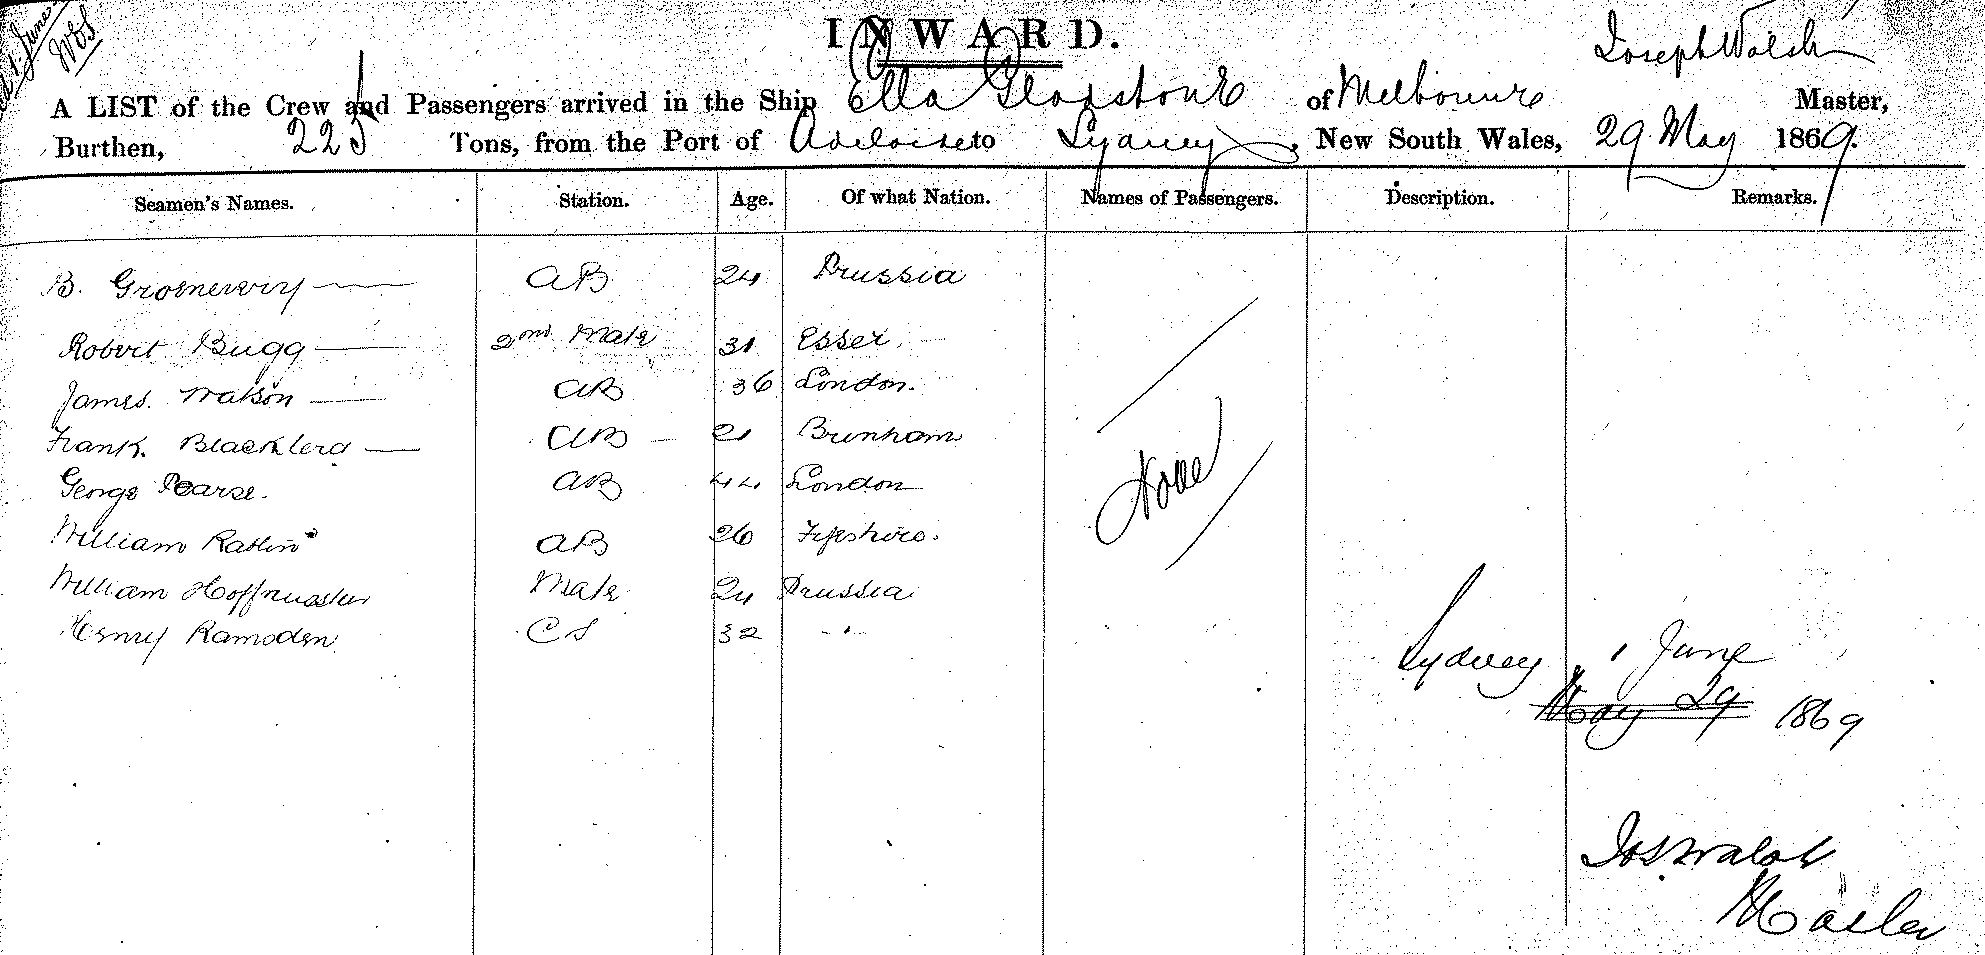 1 June
WBS
INWARD.
Joseph Walsh
A LIST of the Crew and Passengers arrived in the Ship Ella Gladstone of Melbourne Master,
Burthen, 225 Tons, from the Port of Adelaide to Sydney, New South Wales, 29 May 1869.
Seamen's Names. Station. Age. Of what Nation. Names of Passengers. Description. Remarks.
B. AB 24 Prussia
Robert Bugg 2nd Mate 31 Essex
James Watson AB 36 London.
Frank AB 21
George Pearse. AB 44 London
William AB 26 Fifeshire.
William Hoffmeister Mate 24 Prussia
Henry Ramsden CS 32 "
None
Sydney 1 June
May 29 1869
Jos Walsh
Master